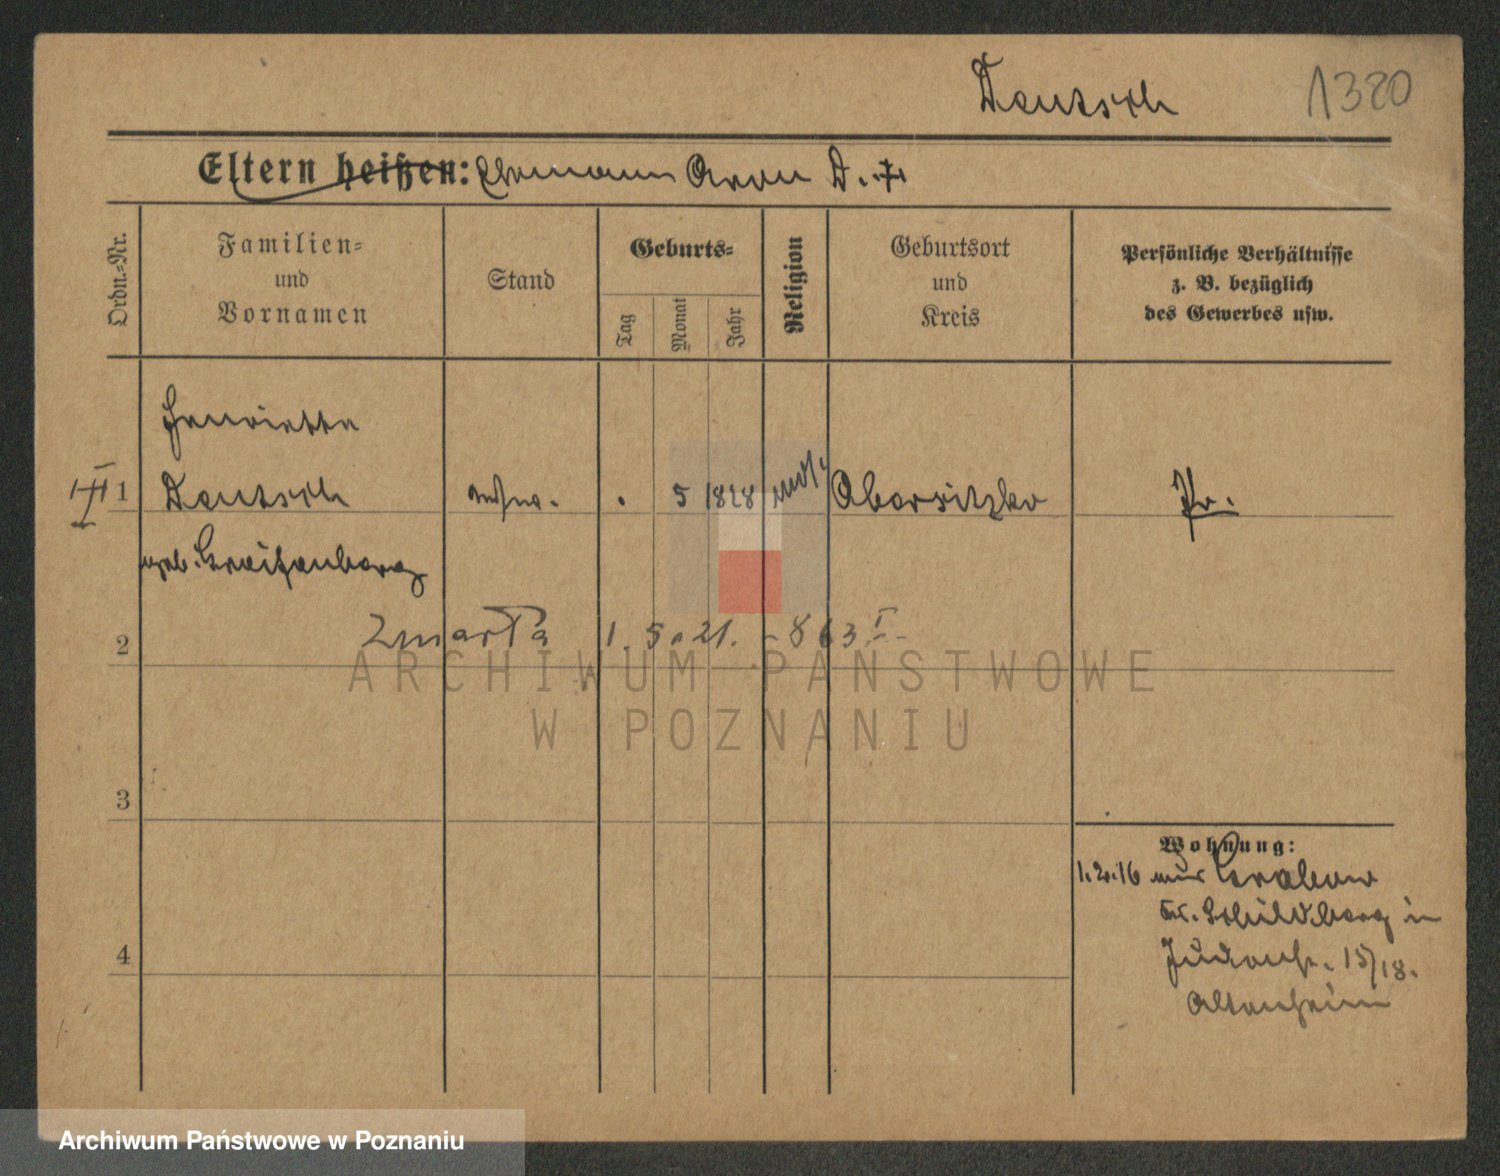 Deutsch 1380
Eltern heißen: Ehemann Aron D. †
Ordn.-Nr.
Familien-
und
Vornamen
Stand
Geburts-
Tag
Monat
Jahr
Religion
Geburtsort
und
Kreis
Persönliche Verhältnisse
z. B. bezüglich
des Gewerbes usw.
Henriette
1 Deutsch . 5 1828 mos. Obersitzko Pr.
geb. Greifenberg
2 Zmarła 1. 5. 21. - 863 I
3
4
Wohnung:
1.2.16 nur Grabow
Kr. Schildberg in
Judenstr. 15/18.
Altenheim
ARCHIWUM PAŃSTWOWE
W POZNANIU
Archiwum Państwowe w Poznaniu